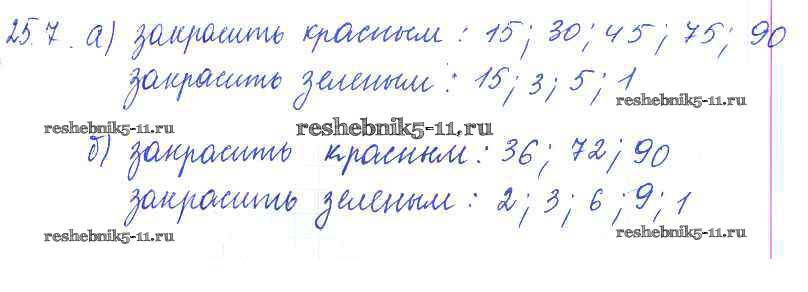 25.7. а) закрасить красным: 15; 30; 45; 75; 90
закрасить зеленым: 15; 3; 5; 1
reshebnik5-11.ru
reshebnik5-11.ru
reshebnik5-11.ru
б) закрасить красным: 36; 72; 90
закрасить зеленым: 2; 3; 6; 9; 1
reshebnik5-11.ru
reshebnik5-11.ru